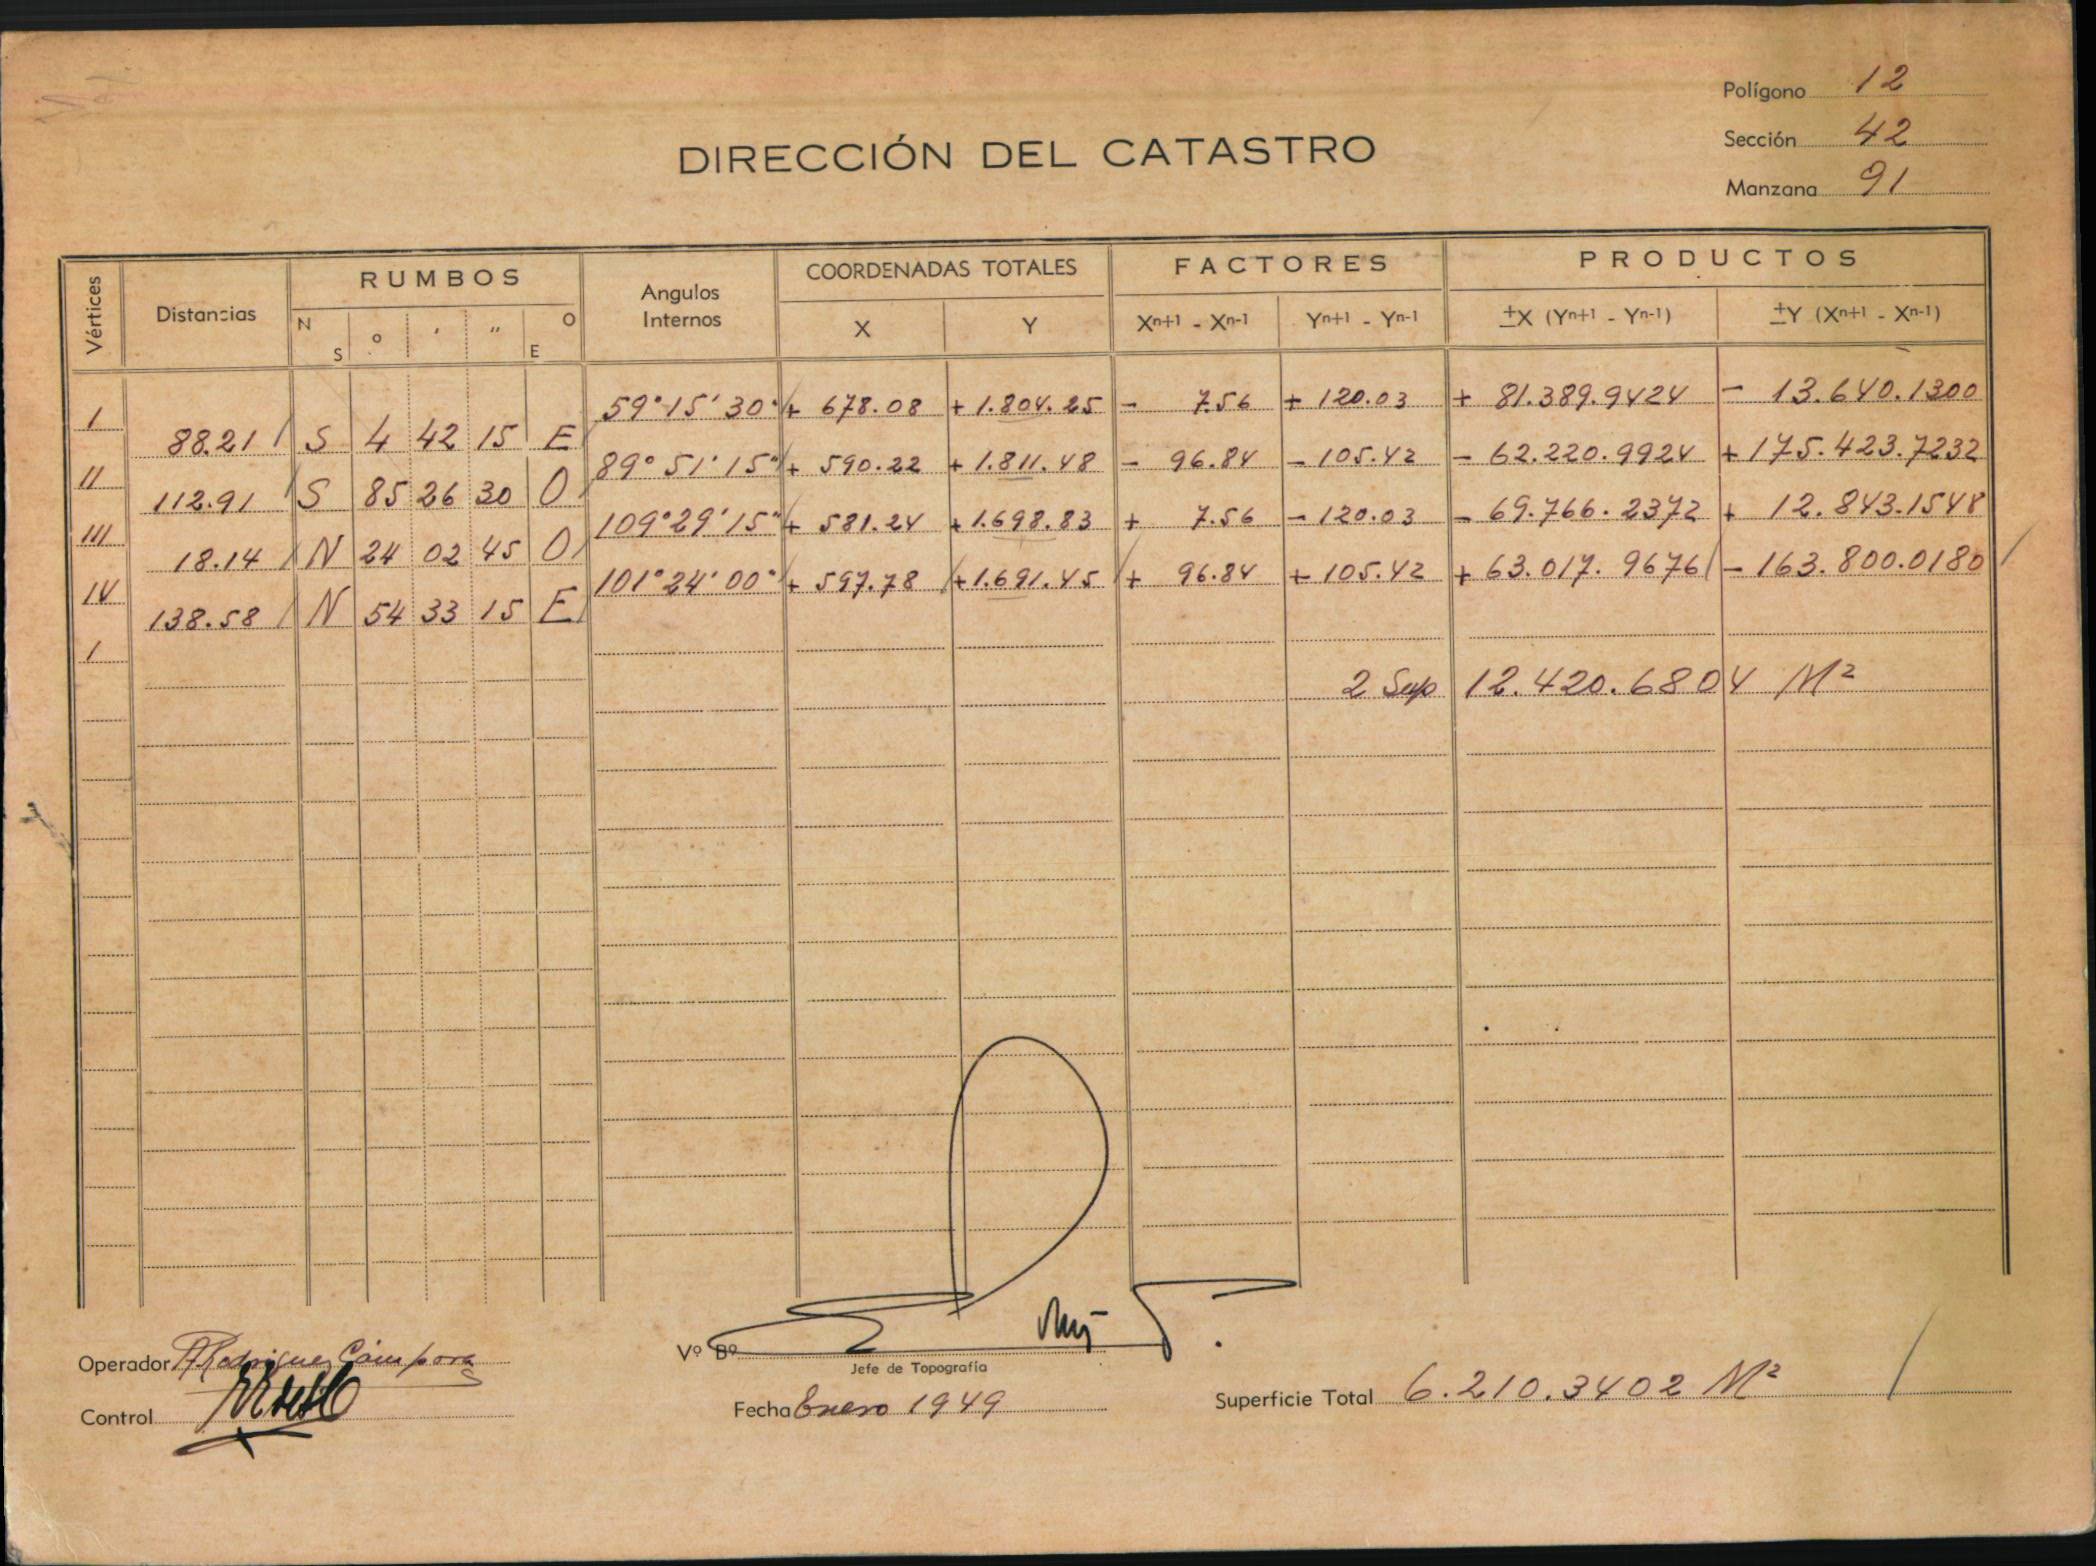 Polígono 12
Sección 42
Manzana 91
DIRECCIÓN DEL CATASTRO
Vértices Distancias RUMBOS Angulos Internos COORDENADAS TOTALES FACTORES PRODUCTOS
N S o ' " O E X Y Xn+1 - Xn-1 Yn+1 - Yn-1 ±X (Yn+1 - Yn-1) ±Y (Xn+1 - Xn-1)
I 59° 15' 30" + 678.08 + 1.804.25 - 7.56 + 120.03 + 81.389.9424 - 13.640.1300
88.21 S 4 42 15 E
II 89° 51' 15" + 590.22 + 1.811.48 - 96.84 - 105.42 - 62.220.9924 + 175.423.7232
112.91 S 85 26 30 O
III 109° 29' 15" + 581.24 + 1.698.83 + 7.56 - 120.03 - 69.766.2372 + 12.843.1548
18.14 N 24 02 45 O
IV 101° 24' 00" + 597.78 + 1.691.45 + 96.84 + 105.42 + 63.017.9676 - 163.800.0180
138.58 N 54 33 15 E
I
2 Sup 12.420.6804 M²
Operador ARodriguez Cámpora
Control
Vº Bº
Jefe de Topografía
Fecha Enero 1949
Superficie Total 6.210.3402 M²